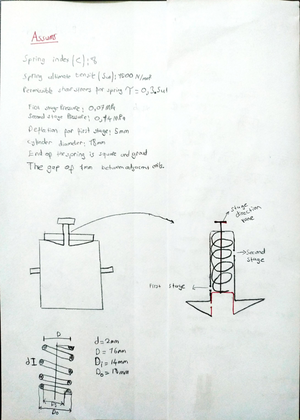 Assume
Spring index (C) : 8
Spring ultimate tensile (Sut) : 1500 N/mm²
Permissible shear stress for spring τ = 0.3 Sut
First stage Pressure : 0.07 MPa
Second stage Pressure : 0.14 MPa
Deflection for first stage : 5mm
cylinder diameter : 18mm
End of the spring is square and
The gap of 1mm between adjacent coils
stage
direction
Second
stage
First stage
D
dI
Di
Do
d = 2mm
D = 16mm
Di = 14mm
Do = 18mm